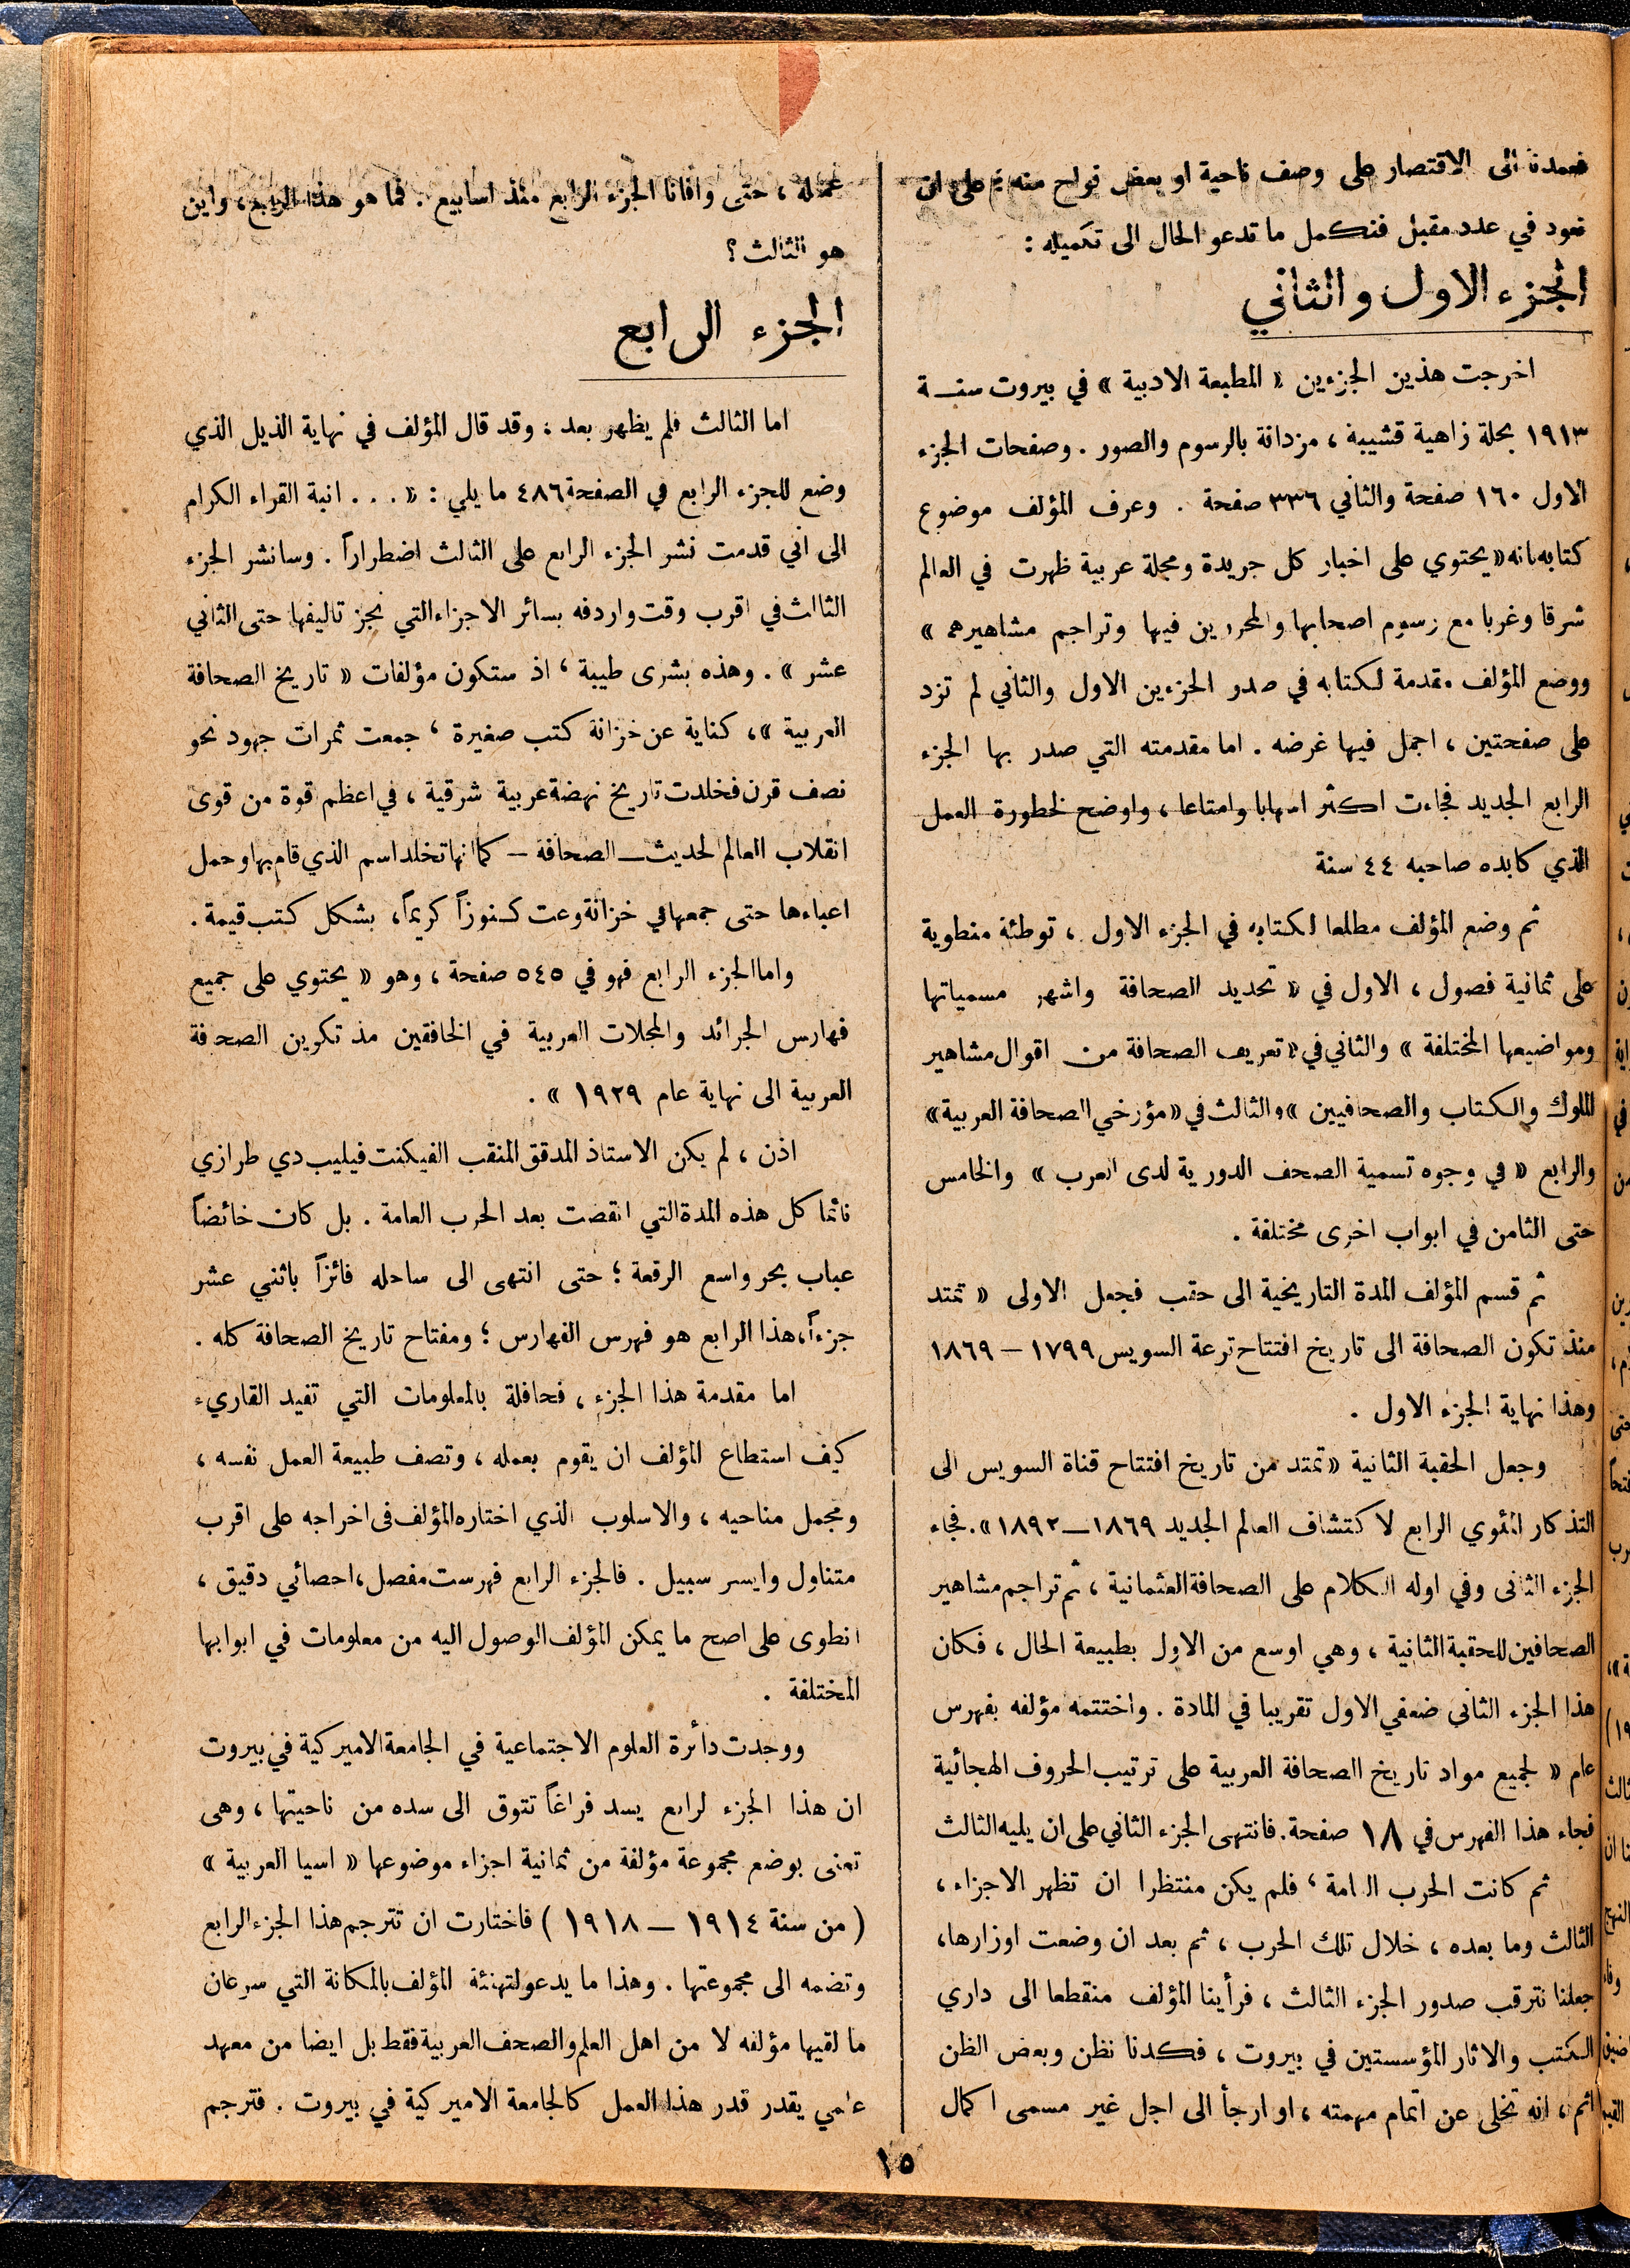 فعمدنا الى الاقتصار على وصف ناحية او بعض نواح منه ، على ان
نعود في عدد مقبل فنكمل ما تدعو الحال الى تكميله :
الجزء الاول والثاني
اخرجت هذين الجزءين « المطبعة الادبية » في بيروت سنة
١٩١٣ بحلة زاهية قشيبة ، مزدانة بالرسوم والصور . وصفحات الجزء
الاول ١٦٠ صفحة والثاني ٣٣٦ صفحة . وعرف المؤلف موضوع
كتابه بانه « يحتوي على اخبار كل جريدة ومجلة عربية ظهرت في العالم
شرقا وغربا مع رسوم اصحابها والمحررين فيها وتراجم مشاهيرهم »
ووضع المؤلف مقدمة لكتابه في صدر الجزءين الاول والثاني لم تزد
على صفحتين ، اجمل فيها غرضه . اما مقدمته التي صدر بها الجزء
الرابع الجديد فجاءت اكثر اسهابا وامتاعا ، واوضح لخطورة العمل
الذي كابده صاحبه ٤٤ سنة
ثم وضع المؤلف مطلعا لكتابه في الجزء الاول ، توطئة منطوية
على ثمانية فصول ، الاول في « تحديد الصحافة واشهر مسمياتها
ومواضيعها المختلفة » والثاني في « تعريف الصحافة من اقوال مشاهير
الملوك والكتاب والصحافيين » والثالث في « مؤرخي الصحافة العربية »
والرابع « في وجوه تسمية الصحف الدورية لدى العرب » والخامس
حتى الثامن في ابواب اخرى مختلفة .
ثم قسم المؤلف المدة التاريخية الى حقب فجعل الاولى « تمتد
منذ تكون الصحافة الى تاريخ افتتاح ترعة السويس ١٧٩٩ – ١٨٦٩
وهذا نهاية الجزء الاول .
وجعل الحقبة الثانية « تمتد من تاريخ افتتاح قناة السويس الى
التذكار المئوي الرابع لاكتشاف العالم الجديد ١٨٦٩ – ١٨٩٢ » . فجاء
الجزء الثانى وفي اوله الكلام على الصحافة العثمانية ، ثم تراجم مشاهير
الصحافين للحقبة الثانية ، وهي اوسع من الاول بطبيعة الحال ، فكان
هذا الجزء الثاني ضعفي الاول تقريبا في المادة . واختتمه مؤلفه بفهرس
عام « لجميع مواد تاريخ الصحافة العربية على ترتيب الحروف الهجائية
فجاء هذا الفهرس في ١٨ صفحة . فانتهى الجزء الثاني على ان يليه الثالث
ثم كانت الحرب العامة ، فلم يكن منتظرا ان تظهر الاجزاء ،
الثالث وما بعده ، خلال تلك الحرب ، ثم بعد ان وضعت اوزارها ،
جعلنا نترقب صدور الجزء الثالث ، فرأينا المؤلف منقطعا الى داري
الكتب والاثار المؤسستين في بيروت ، فكدنا نظن وبعض الظن
اثم ، انه تخلى عن اتمام مهمته ، او ارجأ الى اجل غير مسمى اكمال
عمله ، حتى وافانا الجزء الرابع منذ اسابيع . فما هو هذا الرابع ، واين
هو الثالث ؟
الجزء الرابع
اما الثالث فلم يظهر بعد ، وقد قال المؤلف في نهاية الذيل الذي
وضع للجزء الرابع في الصفحة ٤٨٦ ما يلي : « . . . انبة القراء الكرام
الى اني قدمت نشر الجزء الرابع على الثالث اضطراراً . وسانشر الجزء
الثالث في اقرب وقت واردفه بسائر الاجزاء التي نجز تاليفها حتى الثاني
عشر » . وهذه بشرى طيبة ، اذ ستكون مؤلفات « تاريخ الصحافة
العربية » ، كناية عن خزانة كتب صغيرة ، جمعت ثمرات جهود نحو
نصف قرن فخلدت تاريخ نهضة عربية شرقية ، في اعظم قوة من قوى
انقلاب العالم الحديث – الصحافة – كما انها تخلد اسم الذي قام بها وحمل
اعباءها حتى جمعها في خزانة وعت كنوزاً كريماً ، بشكل كتب قيمة .
واما الجزء الرابع فهو في ٥٤٥ صفحة ، وهو « يحتوي على جميع
فهارس الجرائد والمجلات العربية في الخافقين مذ تكوين الصحافة
العربية الى نهاية عام ١٩٢٩ » .
اذن ، لم يكن الاستاذ المدقق المنقب الفيكنت فيليب دي طرازي
نائما كل هذه المدة التي انقضت بعد الحرب العامة . بل كان خائضاً
عباب بحر واسع الرقعة ؛ حتى انتهى الى ساحله فائزاً باثني عشر
جزءاً ، هذا الرابع هو فهرس الفهارس ؛ ومفتاح تاريخ الصحافة كله .
اما مقدمة هذا الجزء ، فحافلة بالمعلومات التي تفيد القاريء
كيف استطاع المؤلف ان يقوم بعمله ، وتصف طبيعة العمل نفسه ،
ومجمل مناحيه ، والاسلوب الذي اختاره المؤلف فى اخراجه على اقرب
متناول وايسر سبيل . فالجزء الرابع فهرست مفصل ، احصائي دقيق ،
انطوى على اصح ما يمكن المؤلف الوصول اليه من معلومات في ابوابها
المختلفة .
ووجدت دائرة العلوم الاجتماعية في الجامعة الاميركية في بيروت
ان هذا الجزء الرابع يسد فراغاً تتوق الى سده من ناحيتها ، وهى
تعنى بوضع مجموعة مؤلفة من ثمانية اجزاء موضوعها « اسيا العربية »
( من سنة ١٩١٤ – ١٩١٨ ) فاختارت ان تترجم هذا الجزء الرابع
وتضمه الى مجموعتها . وهذا ما يدعو لتهنئة المؤلف بالمكانة التي سرعان
ما لقيها مؤلفه لا من اهل العلم والصحف العربية فقط بل ايضا من معهد
علمي يقدر قدر هذا العمل كالجامعة الاميركية في بيروت . فترجم
١٥